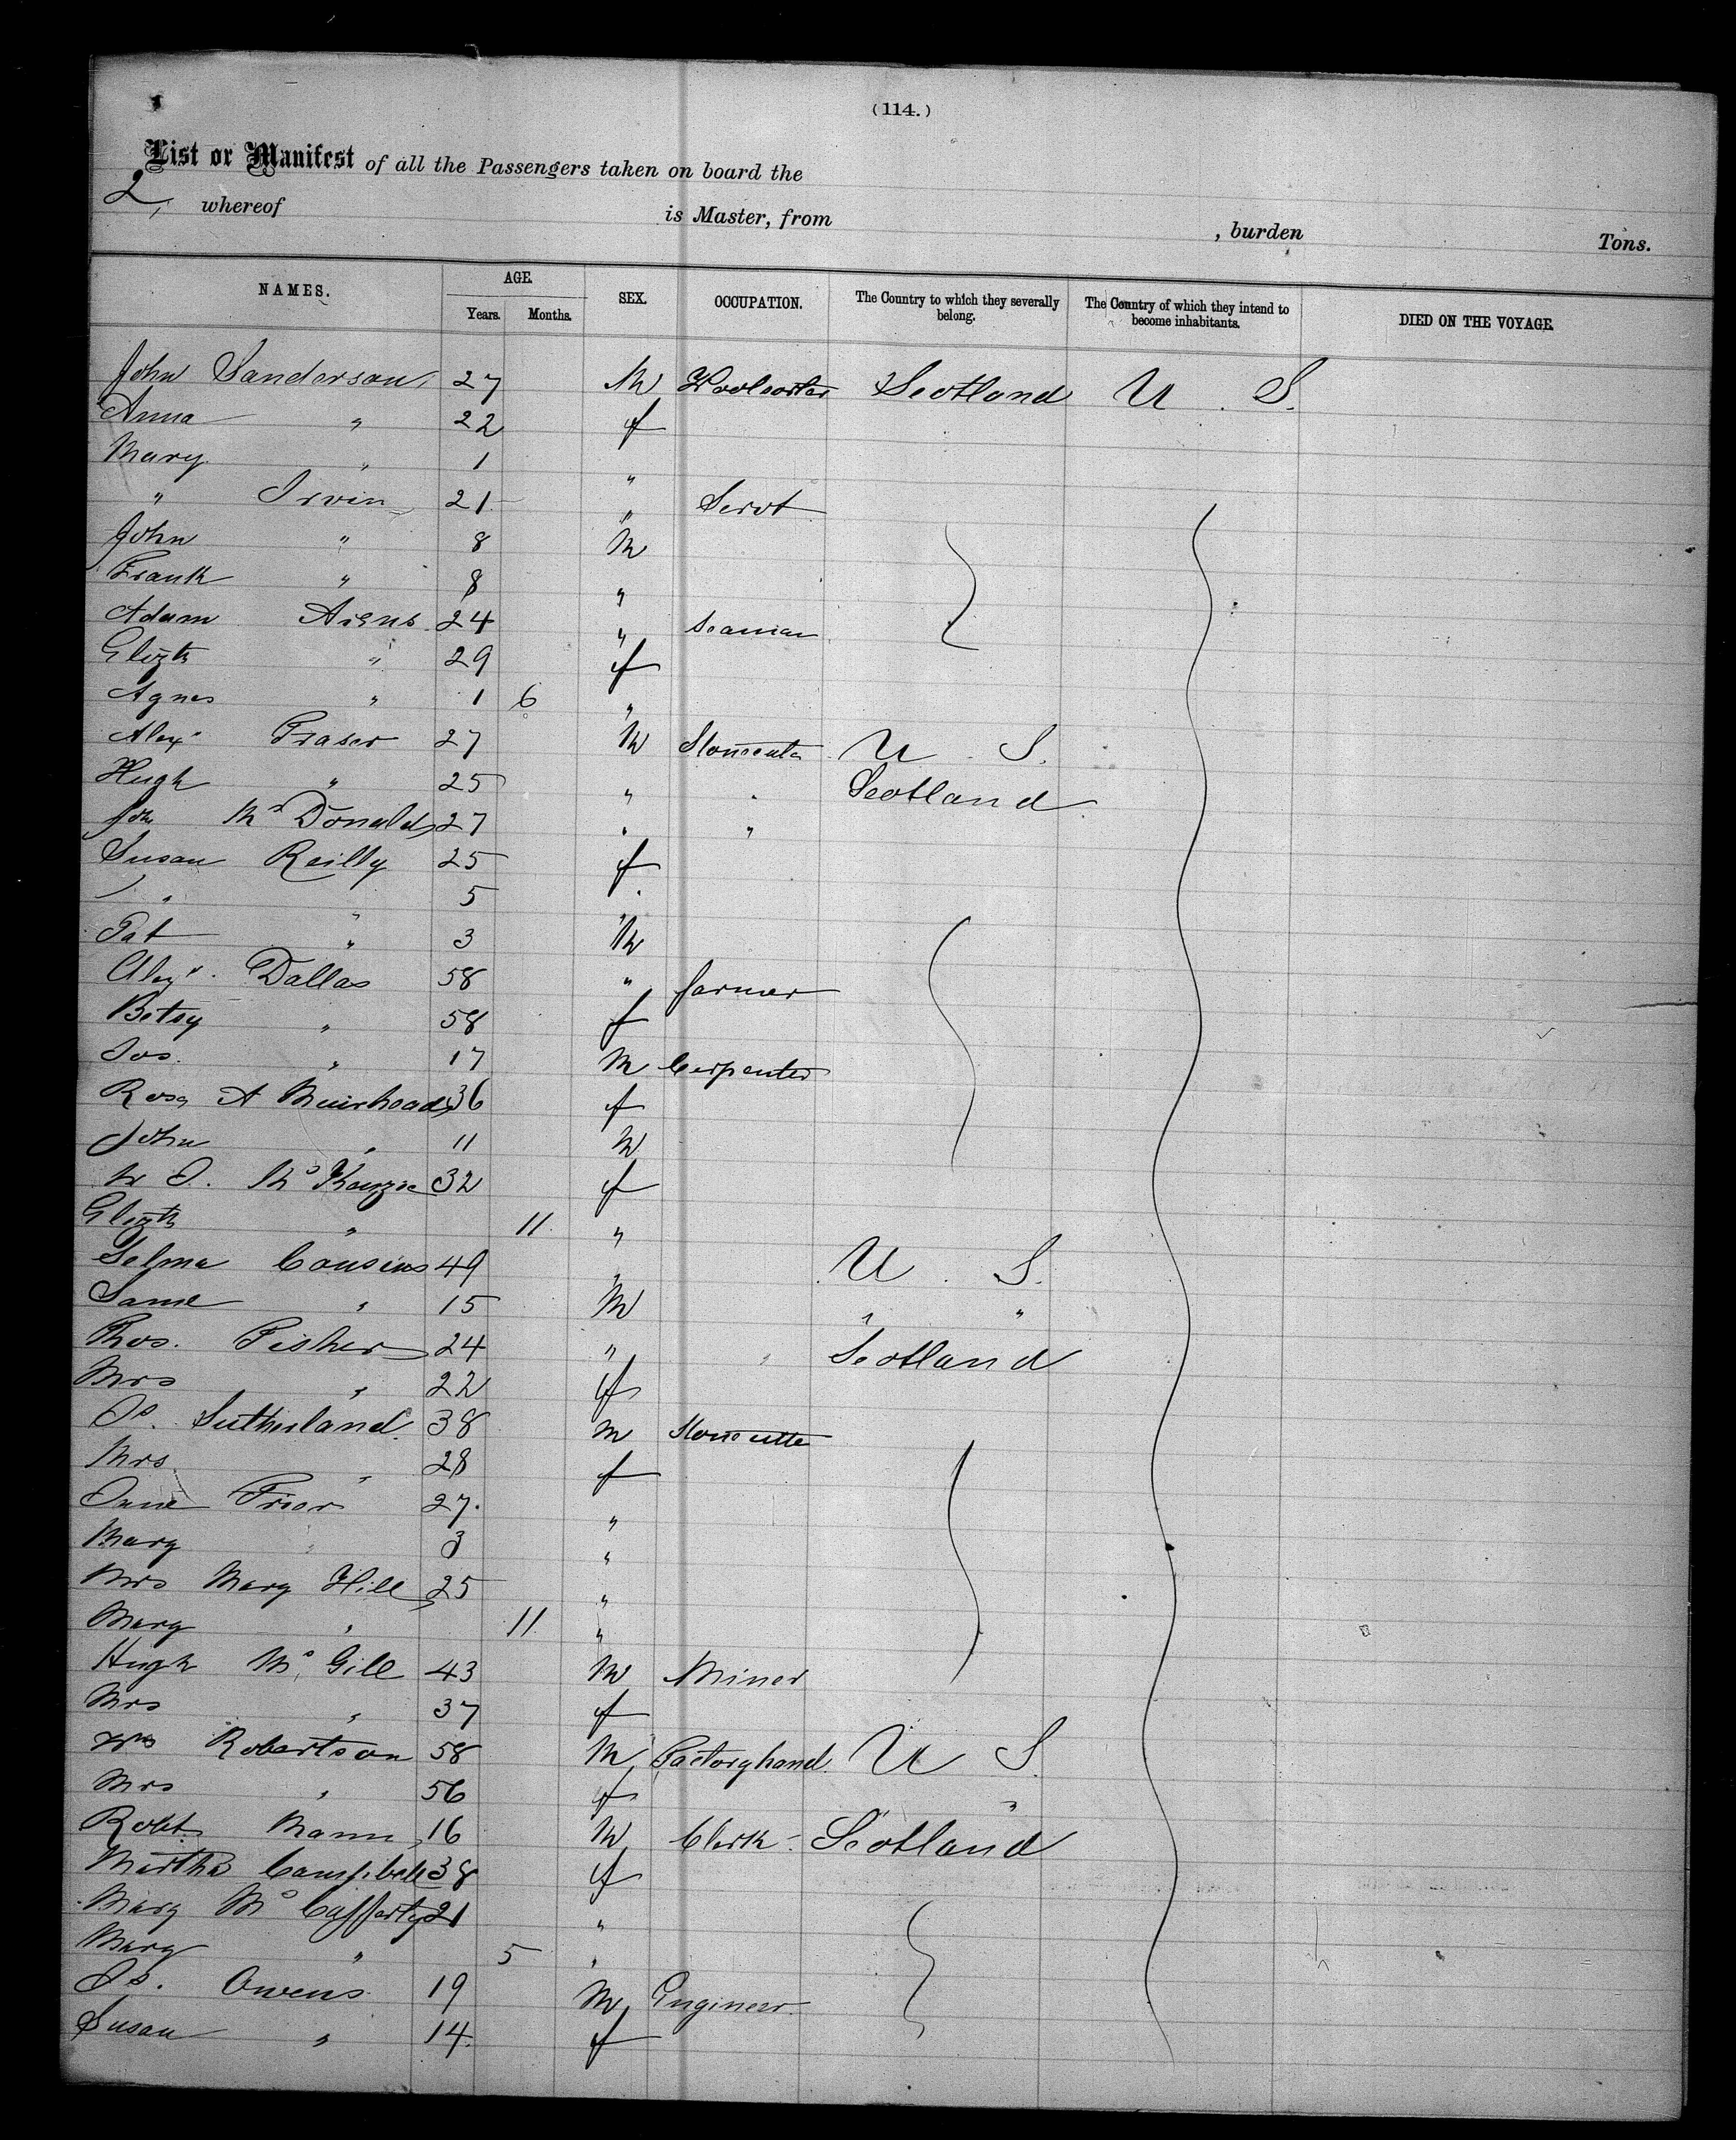 (114.)
List or Manifest of all the Passengers taken on board the
2, whereof is Master, from , burden Tons.
NAMES. AGE. Years. Months. SEX. OCCUPATION. The Country to which they severally belong. The Country of which they intend to become inhabitants. DIED ON THE VOYAGE.
John Sanderson 27 M Woolsorter Scotland U. S.
Anna " 22 f
Mary " 1 "
" Irvin 21 " Servt
John " 8 M
Frank " 8 "
Adam 24 " Seaman
Elizth " 29 f
Agnes " 1 6 "
Alexr Fraser 27 M U. S.
Hugh " 25 " " Scotland
McDonald 27 " "
Susan Reilly 25 f
" " 5 "
Pat " 3 M
Alexr Dallas 58 " farmer
Betsy " 58 f
Jos. " 17 M Carpenter
Rosa A Muirhead 36 f
John " 11 M
McKenzie 32 f
Elizth " 11 "
Selma Cousins 49 " U. S.
" 15 M " "
Thos. Fisher 24 " " Scotland
Mrs " 22 f
Js. Sutherland 38 M Stonecutter
Mrs " 28 f
Jane Frior 27. "
Mary " 3 "
Mrs Mary Hill 25 "
Mary " 11 "
Hugh McGill 43 M Miner
Mrs " 37 f
Wm Robertson 58 M Factoryhand U S.
Mrs " 56 f " "
Robt. Mann 16 M Clerk Scotland
Martha Campbell 38 f
Mary McCafferty 21 "
Mary " 5 "
Js. Owens 19 M Engineer
Susan " 14. f